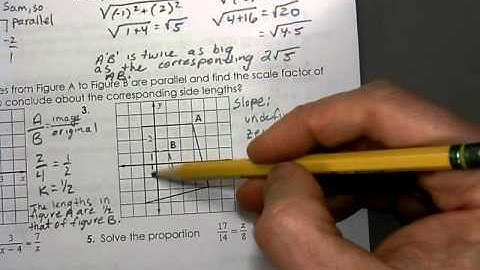 Sam, so
parallel
-2
1
√(-1)²+(2)²
√1+4 = √5
√4+16 = √20
√4·5
2√5
A'B' is twice as big
as the corresponding
AB.
es from Figure A to Figure B are parallel and find the scale factor of
conclude about the corresponding side lengths?
3.
A image
B original
2/4 = 1/2
K = 1/2
The lengths in
figure A are 1/2
that of figure B.
y
A
2
B
1
Slope:
3/x − 4 = 7/x
5. Solve the proportion 17/14 = x/8